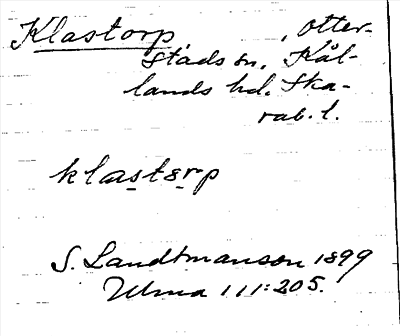 Klastorp, Otter-
stads sn. Kål-
lands hd. Ska-
rab. l.
klastərp
S. Landtmanson 1899
Ulma 111:205.